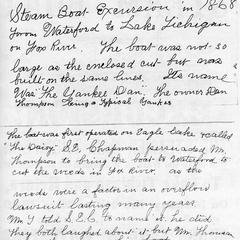 Steam Boat Excursion in 1868
from Waterford to Lake Tichigan
on Fox River. The boat was not so
large as the enclosed cut but was
built on the same lines. Its name
Was "The Yankee Dan". The owner Dan
Thompson being a typical Yankee
The boat was first operated on Eagle Lake & called
"The Daisy" S.E. Chapman persuaded Mr.
Thompson to bring the boat to Waterford to
cut the weeds in Fox River. as the
weeds were a factor in an overflow
lawsuit lasting many years.
Mr T told S.E.C to name it, he did
they both laughed about it but Mr Thomson